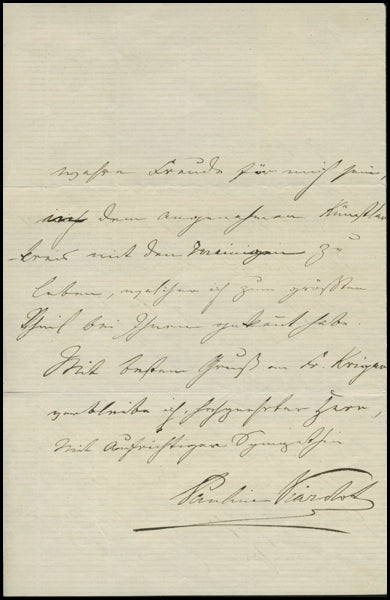 wahre Freude für mich sein,
dem angenehmen Künstler
-kreis mit den Meinigen zu
leben, welcher ich zum größten
Theil bei Ihnen gekannt habe.
Mit besten Gruß an Fr. Krüger
verbleibe ich, hochgeehrter Herr,
Mit Aufrichtiger Sympathie
Pauline Viardot